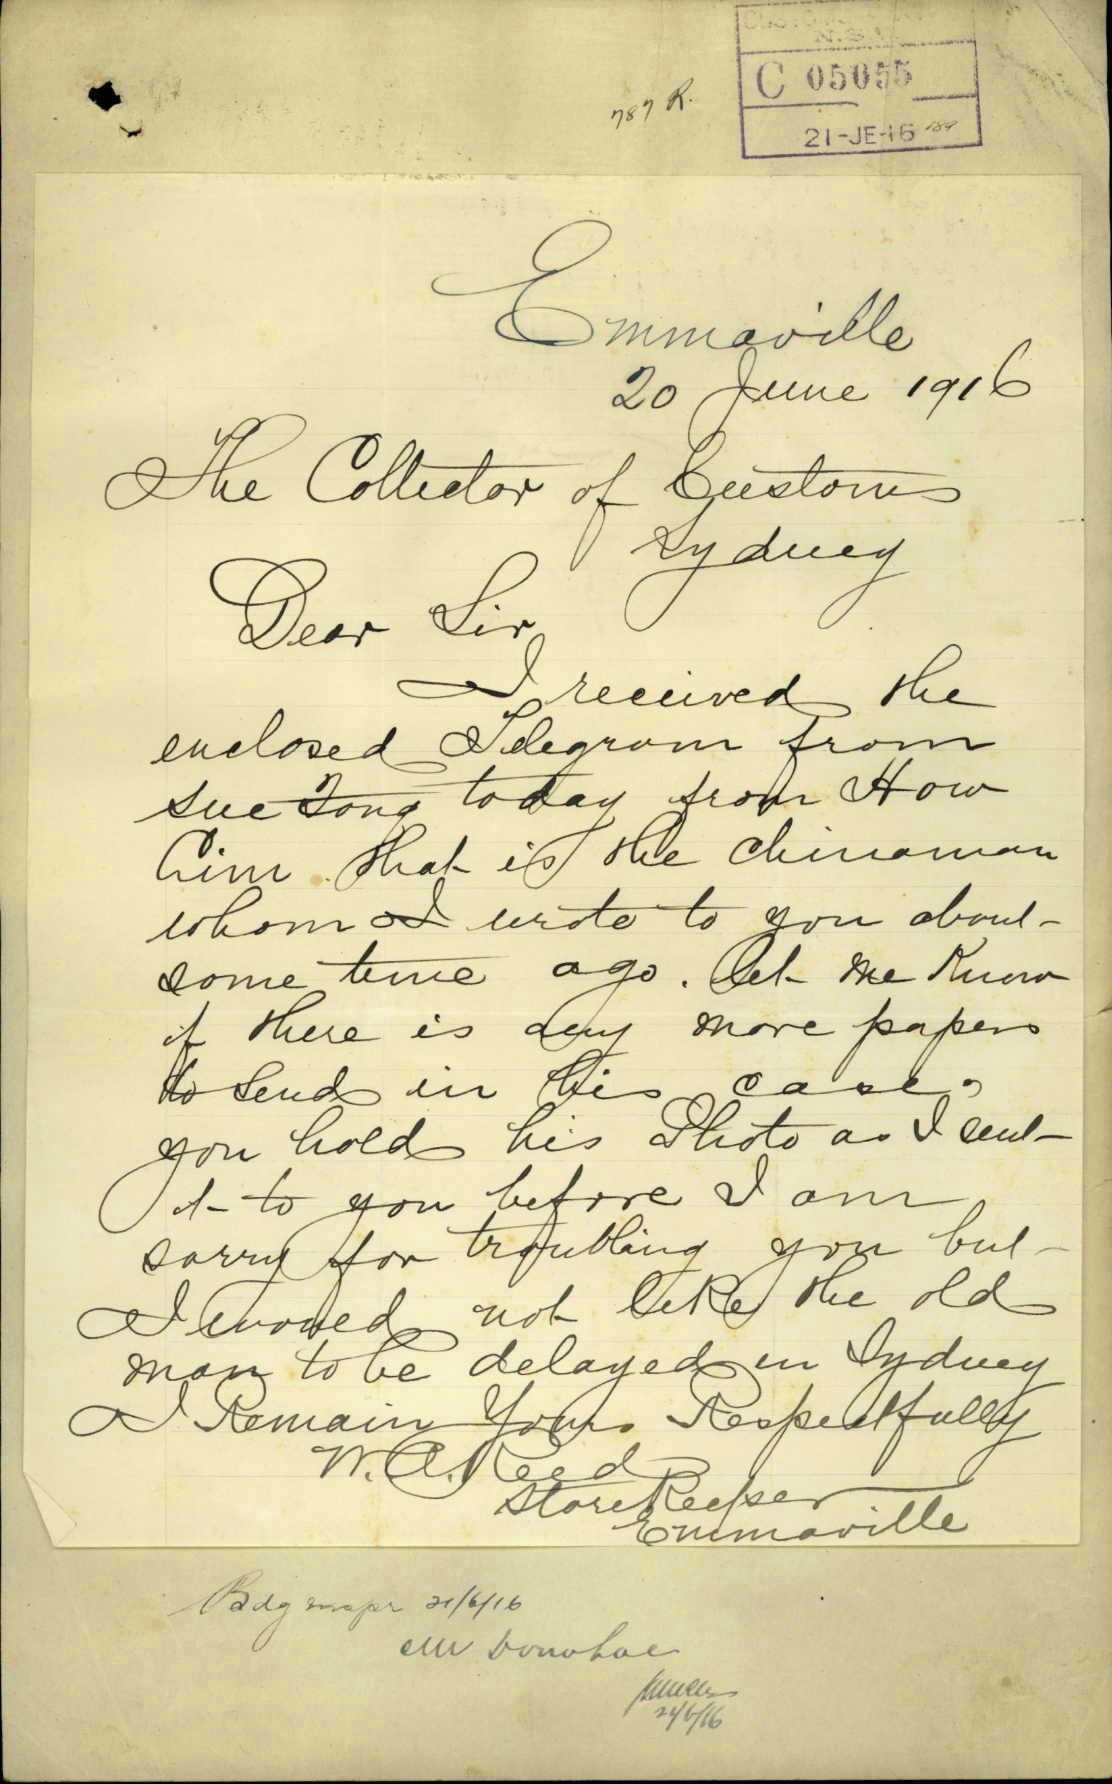 CUSTOMS
N.S.W.
C 05055
21-JE-16
787 R.
Emmaville
20 June 1916
The Collector of Customs
Sydney
Dear Sir
I received the
enclosed Telegram from
Sue Tong today from How
Cim. that is the chinaman
whom I wrote to you about
some time ago. let me Know
if there is any more papers
to send in his case,
you hold his Photo as I sent
it to you before I am
sorry for troubling you but
I would not like the old
man to be delayed in Sydney
I Remain Yours Respectfully
W. A. Reed
StoreKeeper
Emmaville
21/6/16
Mr Donohoe
21/6/16